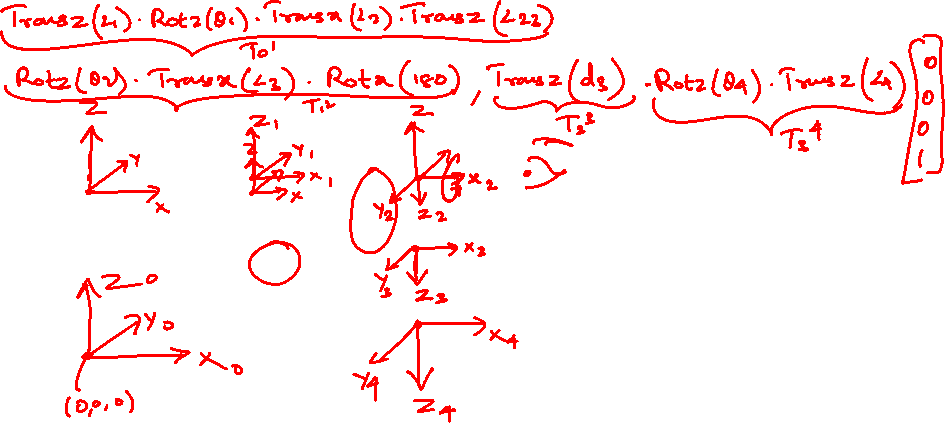 Transz(L1) · Rotz(θ1) · Transx(L2) · Transz(L22)
T0^1
Rotz(θ2) · Transx(L3) · Rotx(180), Transz(d3) · Rotz(θ4) · Transz(L4) [0 0 0 1]
T1^2 T2^3 T3^4
Z Z1 Z
Y Y1
X X1 X X2
Y2 Z2
X3
Y3 Z3
Z_0
Y0
X_0
X4
Y4 Z4
(0,0,0)